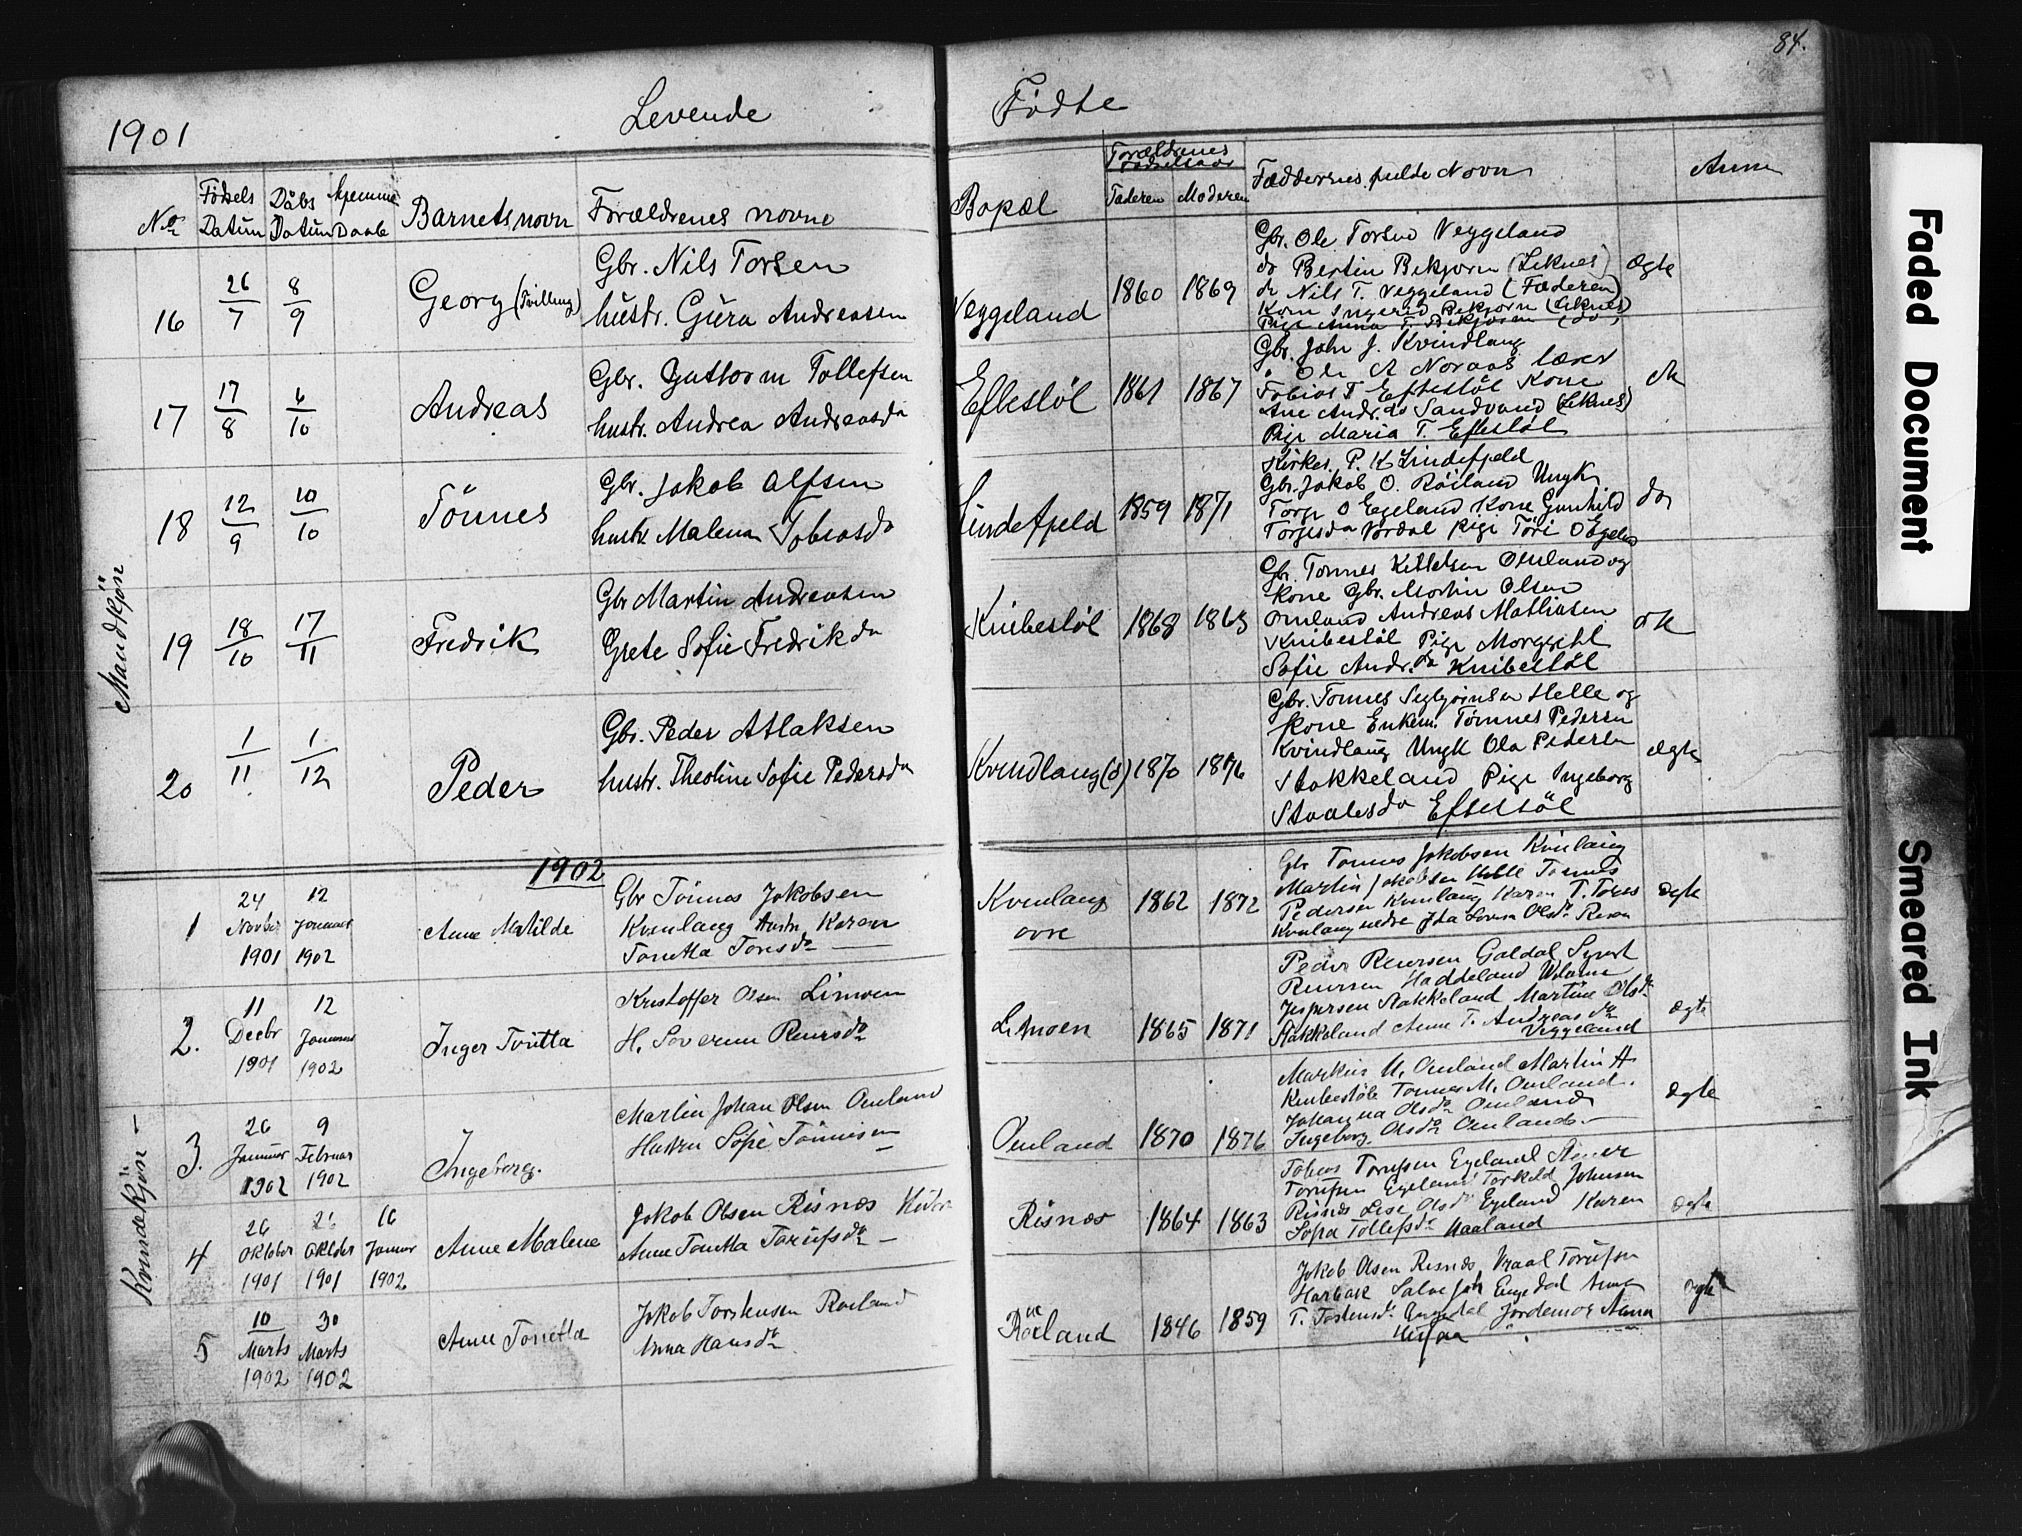 84.
1901 Levende Fødte
No Fødsels Datum Dåbs Datum Hjemme Daab Barnets novn Forældrenes novne Bopæl Forældrenes Fødselsaar Faderen Moderen Fæddernes fulde Novn Anm
Mandkjön
16 26/7 8/9 Georg (Tvilling) Gbr. Nils Torsen
hustr. Gura Andreasen Veggeland 1860 1869
Gbr. Ole Torsen Veggeland
do Bertin Bekjorn (Leknes) Ægte
do Nils T. Veggeland (Faderen)
Kone Ingerid Bekjorn (Leknes)
Pige Anna T. Bekjorn (do)
17 17/8 6/10 Andreas Gbr. Guttorm Tollefsen
hustr. Andrea Andreasda Eftestöl 1861 1867
Gbr. Johr J. Kvindlaug
Ole A Noraas lærer
Tobias T Eftestöl Kone
Ane Andr.da Sandvand (Leknes)
Pige Maria T. Eftestöl
18 12/9 10/10 Tönnes Gbr. Jakob Alfsen
hustr Malena Tobiasda Lindefjeld 1859 1871
Kirkes. P. K Lindefjeld
Gbr. Jakob O. Röiland Ungk do
Torge O Egeland Kone Gunhild
Torjesda Nordal Pige Töri O Egeland
19 18/10 17/11 Fredrik Gbr Martin Andreasen
Grete Sofie Fredrikda Knibestöl 1868 1863
Gbr. Tonnes Kittelsen Omland og
Kone Gbr. Martin Olsen
Omland Andreas Mathiasen
Knibestöl Pige Morgrethe
Sofie Andr.da Knibestöl
20 1/11 1/12 Peder Gbr. Peder Atlaksen
hustr. Theoline Sofie Pedersda Kvindlaug (ö) 1870 1876
Gbr. Tonnes Sigbjørnsen Helle og
Kone Enkem. Tønnes Pedersen
Kvindlaug Ungk Ola Pedersen Ægte
Stakkeland Pige Ingeborg
Staalesda Eftestöl
1902
Kvindekjön
1 24 Novbr 1901 12 Januar 1902 Anne Matilde Gbr Tönnes Jokobsen
Kvenlaug Hustr Karen
Tonetta Toresda Kvenlaug øvre 1862 1872
Gbr Tonnes Jokobsen Kvinlaug
Martin Jokobsen Helle Tonnes
Pedersen Kvinlaug Karen T. Tores ægte
Kvinlaug nedre
2. 11 Decbr 1901 12 Januar 1902 Inger Tonetta Kristoffer Olsen Limoen
H. Soverine Reiersda Limoen 1865 1871
Peder Reiersen Galdal Syvert
Reiersen Haddeland
Jespersen Stakkeland Martine Olsda
Stakkeland Anne T. Andreas da ægte
Veggeland
3. 26 Januar 1902 9 Februar 1902 Ingeborg. Martin Johan Olsen Omland
Sofie Tönnisen Omland 1870 1876
Markus M. Omland Martin A
Knibestöl Tonnes M. Omland.
Johanna Olsda Omland ægte
Ingeborg Olsda Omland
4 26 Oktober 1901 26 Oktober 1901 16 Januar 1902 Anne Malene Jokob Olsen Risnæs
Anne Tonetta Torüfsda Risnæs 1864 1863
Tobias Torüfsen Egeland
Torüfsen Egeland Torkeld Johnsen
Risnæs Lise Olsda Egeland Karen ægte
Sofia Tollefsda Haaland
5 10 Marts 1902 30 Marts 1902 Anne Tonetta Jokob Torstensen Roiland
Anna Hansda Röiland 1846 1859
Jokob Olsen Risnæs
Salve Engedal Anna
T. Tostensda Engedal Jordemor Anna ægte
Faded Document
Smeared Ink